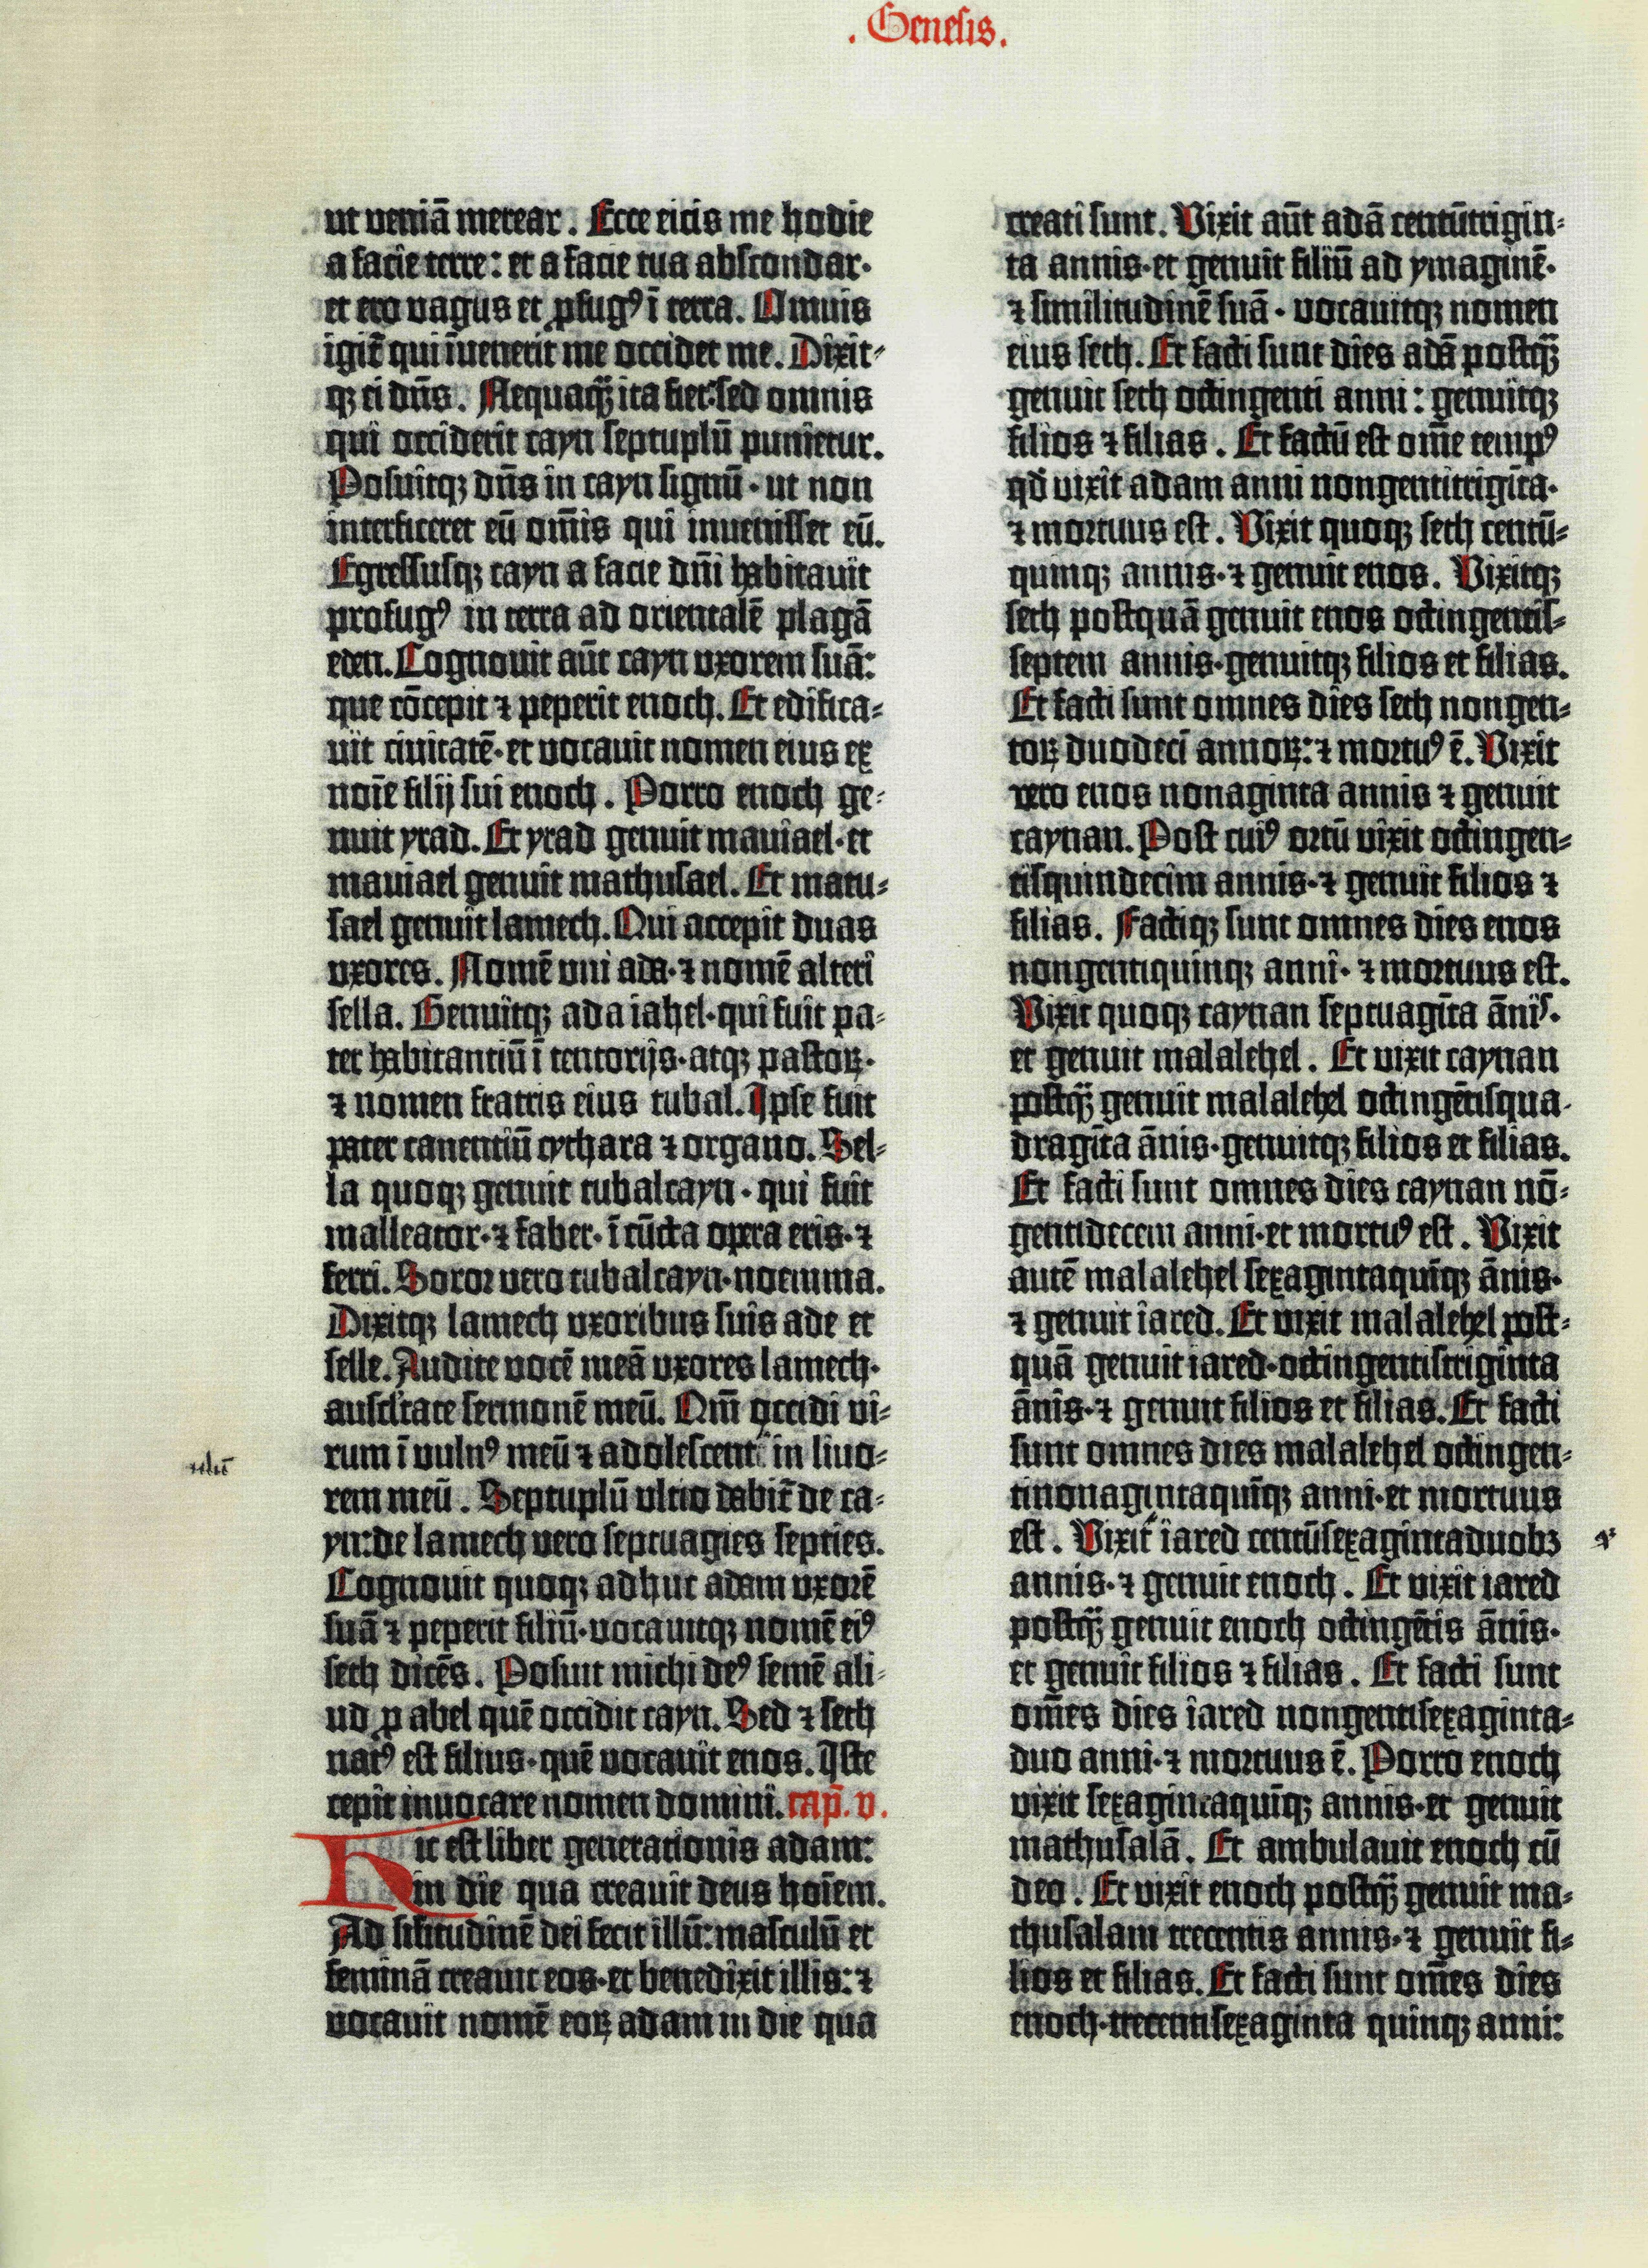 . Genesis.
ut veniā merear . Ecce eicis me hodie
a facie terre : et a facie tua abscondar·
et ero vagus et ꝓfugꝰ ī terra. Omnis
igit̄ qui īvenerit me occidet me. Dixit⸗
qꝫ ei dn̄s . Nequaqꝫ̄ ita fiet: sed omnis
qui occiderit cayn septuplū punietur.
Posuitqꝫ dn̄s in cayn signū · ut non
interficeret eū om̄is qui invenisset eū.
Egressusqꝫ cayn a facie dn̄i habitavit
profugꝰ in terra ad orientalē plagā
eden. Cognovit aūt cayn uxorem suā:
que cōcepit ⁊ peperit enoch. Et edifica⸗
vit civitatē· et vocavit nomen eius ex
noīe filij sui enoch . Porro enoch ge⸗
nuit yrad. Et yrad genuit maviael· et
maviael genuit mathusael. Et matu⸗
sael genuit lamech. Qui accepit duas
uxores. Nomē uni ada· ⁊ nomē alteri
sella. Genuitqꝫ ada iahel· qui fuit pa⸗
ter habitantiū ī tentorijs· atqꝫ pastoꝝ·
⁊ nomen fratris eius tubal. Ipse fuit
pater canentiū cythara ⁊ organo. Sel⸗
la quoqꝫ genuit tubalcayn · qui fuit
malleator· ⁊ faber· ī cūcta opera eris· ⁊
ferri. Soror vero tubalcayn· noemma.
Dixitqꝫ lamech uxoribus suis ade et
selle. Audite vocē meā uxores lamech·
ausc̄ltate sermonē meū. Qm̄ occidi vi⸗
rum ī vulnꝰ meū ⁊ adolescent in livo⸗
rem meū . Septuplū ultio dabit̄ de ca⸗
yn: de lamech vero septuagies septies.
Cognovit quoqꝫ adhuc adam uxorē
suā ⁊ peperit filiū· vocavitqꝫ nomē eiꝰ
seth dicēs . Posuit michi deꝰ semē ali⸗
ud ꝓ abel quē occidit cayn. Sed ⁊ seth
natꝰ est filius· quē vocavit enos. Iste
cepit invocare nomen domini. cap̄. v.
Hic est liber generationis adam:
in die qua creavit deus hoīem.
Ad sil̄itudinē dei fecit illū: masculū et
feminā creavit eos· et benedixit illis: ⁊
vocavit nomē eoꝝ adam in die qua
creati sunt. Vixit aūt adā centūtrigin⸗
ta annis· et genuit filiū ad ymaginē·
⁊ similitudinē suā · vocavitqꝫ nomen
eius seth. Et facti sunt dies adā postqꝫ̄
genuit seth octingenti anni : genuitqꝫ
filios ⁊ filias . Et factū est om̄e tempꝰ
qd̄ vixit adam anni nongentitrigīta·
⁊ mortuus est . Vixit quoqꝫ seth centū⸗
quinqꝫ annis· ⁊ genuit enos. Vixitqꝫ
seth postquā genuit enos octingentis⸗
septem annis· genuitqꝫ filios et filias.
Et facti sunt omnes dies seth nongen⸗
toꝝ duodecī annoꝝ: ⁊ mortuꝰ ē. Vixit
vero enos nonaginta annis ⁊ genuit
caynan. Post cuiꝰ ortū vixit octingen⸗
tisquindecim annis· ⁊ genuit filios ⁊
filias. Factiqꝫ sunt omnes dies enos
nongentiquinqꝫ anni· ⁊ mortuus est.
Vixit quoqꝫ caynan septuagīta ānis·
et genuit malalehel . Et vixit caynan
postqꝫ̄ genuit malalehel octingētisqua⸗
dragīta ānis· genuitqꝫ filios et filias.
Et facti sunt omnes dies caynan nō⸗
gentidecem anni· et mortuꝰ est . Vixit
autē malalehel sexagintaquīqꝫ ānis·
⁊ genuit iared. Et vixit malalehel post⸗
quā genuit iared· octingentistriginta
ānis· ⁊ genuit filios et filias. Et facti
sunt omnes dies malalehel octingen⸗
tinonagintaquīqꝫ anni· et mortuus
est . Vixit iared centūsexagintaduobꝫ
annis· ⁊ genuit enoch . Et vixit iared
postqꝫ̄ genuit enoch octingētis ānis·
et genuit filios ⁊ filias . Et facti sunt
om̄es dies iared nongentisexaginta⸗
duo anni· ⁊ mortuus ē. Porro enoch
vixit sexagintaquīqꝫ annis· et genuit
mathusalā. Et ambulavit enoch cū
deo . Et vixit enoch postqꝫ̄ genuit ma⸗
thusalam trecentis annis· ⁊ genuit fi⸗
lios et filias. Et facti sunt om̄es dies
enoch· trecentisexaginta quinqꝫ anni: